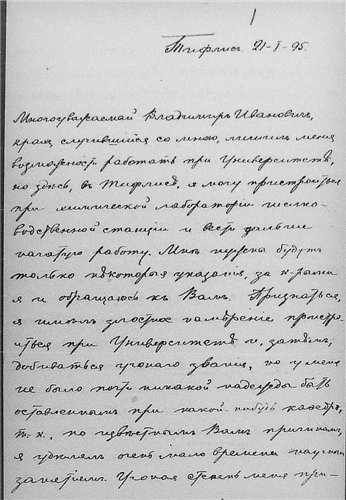 1
Тифлисъ 21-I-95.
Многоуважаемый Владимиръ Ивановичъ,
крахъ, случившійся со мною, лишилъ меня
возможности работать при Университетѣ,
но здѣсь, въ Тифлисѣ, я могу пристроиться
при химической лабораторіи шелко-
водственной станціи и вести дальше
начатую работу. Мнѣ нужны будутъ
только нѣкоторыя указанія, за к-рыми
я и обращаюсь къ Вамъ. Признаться,
я имѣлъ злостное намѣреніе пристро-
иться при Университетѣ и, затѣмъ,
добиваться ученаго званія, но у меня
не было почти никакой надежды быть
оставленнымъ при какой нибудь каѳедрѣ,
т. к., по извѣстнымъ Вамъ причинамъ,
я удѣлялъ очень мало времени научнымъ
занятіямъ. Ученая степень меня при-